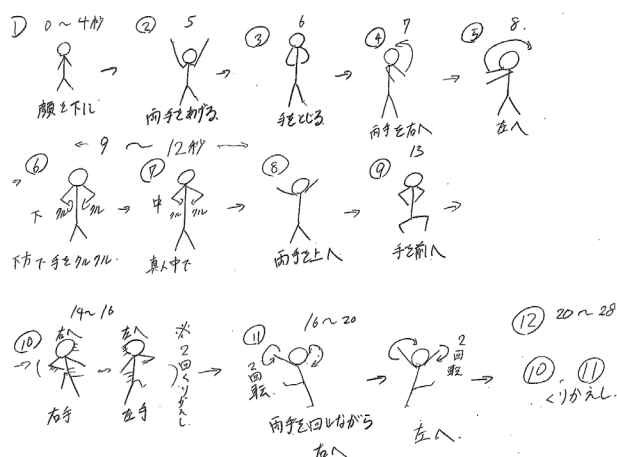 ① 0～4秒
顔を下に
② 5
両手をあげる
③ 6
手をとじる
④ 7
両手を右へ
⑤ 8.
左へ
← 9 ～ 12秒 →
⑥
下 クル クル
下方で手をクルクル.
⑦
中 クル クル
真ん中で
⑧
両手を上へ
⑨ 13
手を前へ
⑩ 14～16
右へ
右手
左へ
左手
※2回くりかえし
⑪ 16～20
2回転
両手を回しながら
右へ
2回転
左へ.
⑫ 20～28
⑩、⑪
くりかえし.